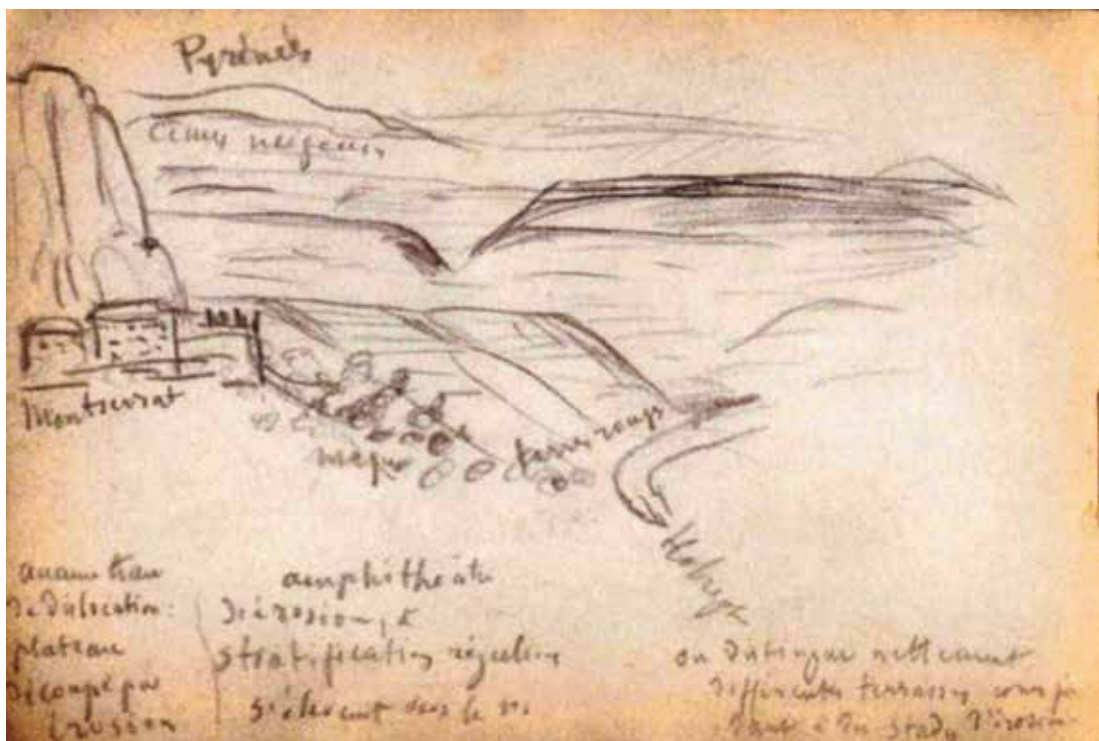 Pyrénées
Cimes neigeuses
Montserrat
terres rouges
aucune trace
de dislocation :
plateau
découpé par
érosion
amphithéâtre
d'érosion, à
stratifications régulières
s'élevant vers le
on distingue nettement
différentes terrasses
à des stades d'érosion